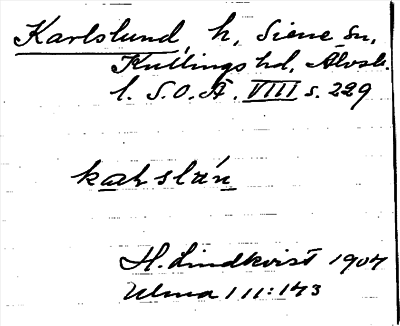 Karlslund, h, Siene sn,
Kullings hd, Älvsb.
l. S.O.Ä. VIII s. 229
kaʀslún
H. Lindkvist 1907
Ulma 111:143